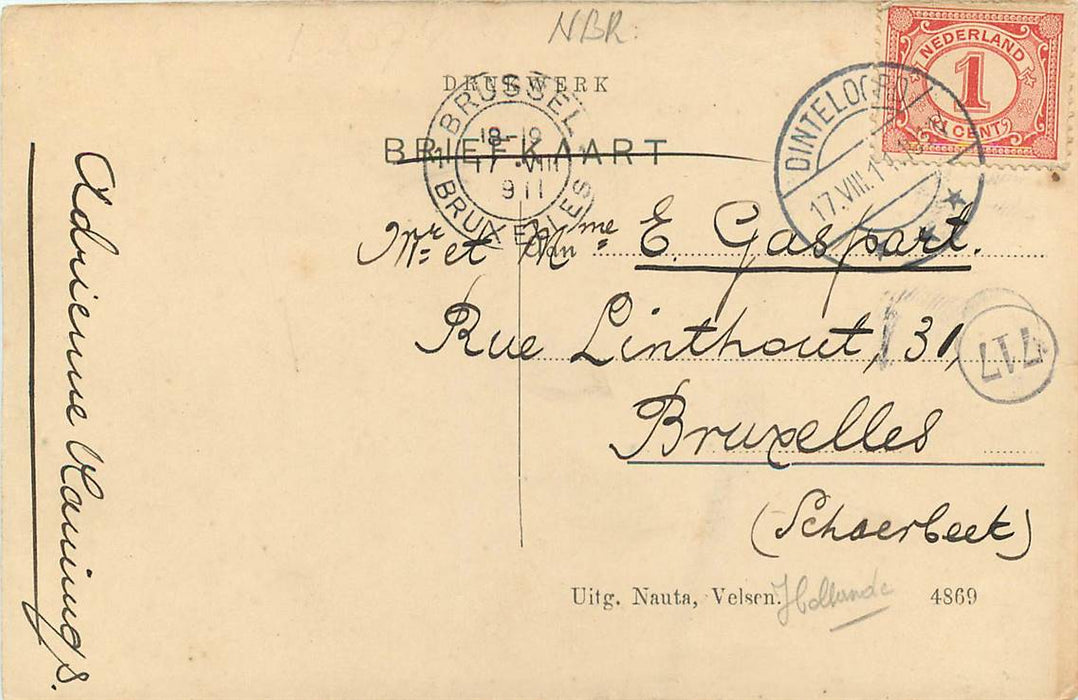 NBR.
DRUKWERK
BRIEFKAART
NEDERLAND
1
1 CENT
DINTELOORD
17.VIII.11
BRUSSEL
18-19
17 VIII
911
BRUXELLES
Mr. et Mme E. Gaspart.
Aan
Rue Linthout, 31,
717
Bruxelles
(Schaerbeek)
Uitg. Nauta, Velsen.
Hollande
4869
Adrienne Hanings.